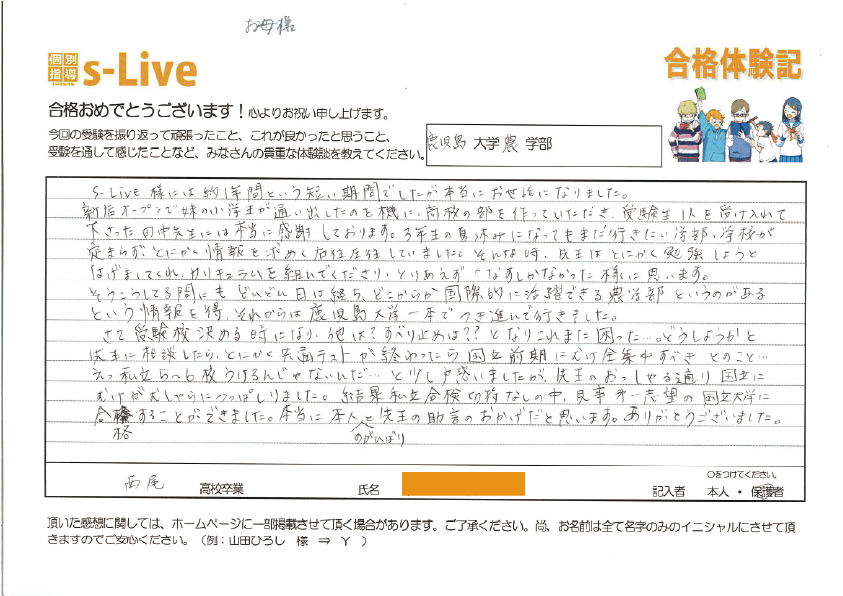 お母様
個別指導 s-Live
合格体験記
合格おめでとうございます！心よりお祝い申し上げます。
今回の受験を振り返って頑張ったこと、これが良かったと思うこと、
受験を通して感じたことなど、みなさんの貴重な体験談を教えてください。
鹿児島 大学 農 学部
s-Live 様には約1年間という短い期間でしたが本当にお世話になりました。
新店オープンで妹の小学生が通い出したのを機に、高校の部を作っていただき、受験生1人を受け入れて
下さった田中先生には本当に感謝しております。3年生の夏休みになってもまだ行きたい学部、学校が
定まらず、とにかく情報を求め右往左往していました。そんな時、先生はとにかく勉強しようと
はげましてくれ、カリキュラムを組んでくださり、とりあえず
なすしかなかった様に思います。
そうこうしてる間にも どんどん日は経ち、どこからか 国際的に活躍できる農学部 というのがある
という情報を得、それからは 鹿児島大学一本でつき進んで行きました。
さて受験校決める時になり、他は？すべり止めは？？となりこれまた困った…。どうしようかと
先生に相談したら、とにかく共通テストが終わったら国立前期にむけ全集中すべき とのこと…
えっ私立5〜6校うけるんじゃないんだ… と少し戸惑いましたが、先生のおっしゃる通り国立に
むけがむしゃらにつっぱしりました。結果私立合検切符なしの中、見事第一志望の国立大学に
合格することができました。本当に本人のがんばりと先生の助言のおかげだと思います。ありがとうございました。
西尾 高校卒業
氏名
○をつけてください。
記入者 本人 ・ 保護者
頂いた感想に関しては、ホームページに一部掲載させて頂く場合があります。ご了承ください。尚、お名前は全て名字のみのイニシャルにさせて頂
きますのでご安心ください。（例：山田ひろし 様 ⇒ Y ）